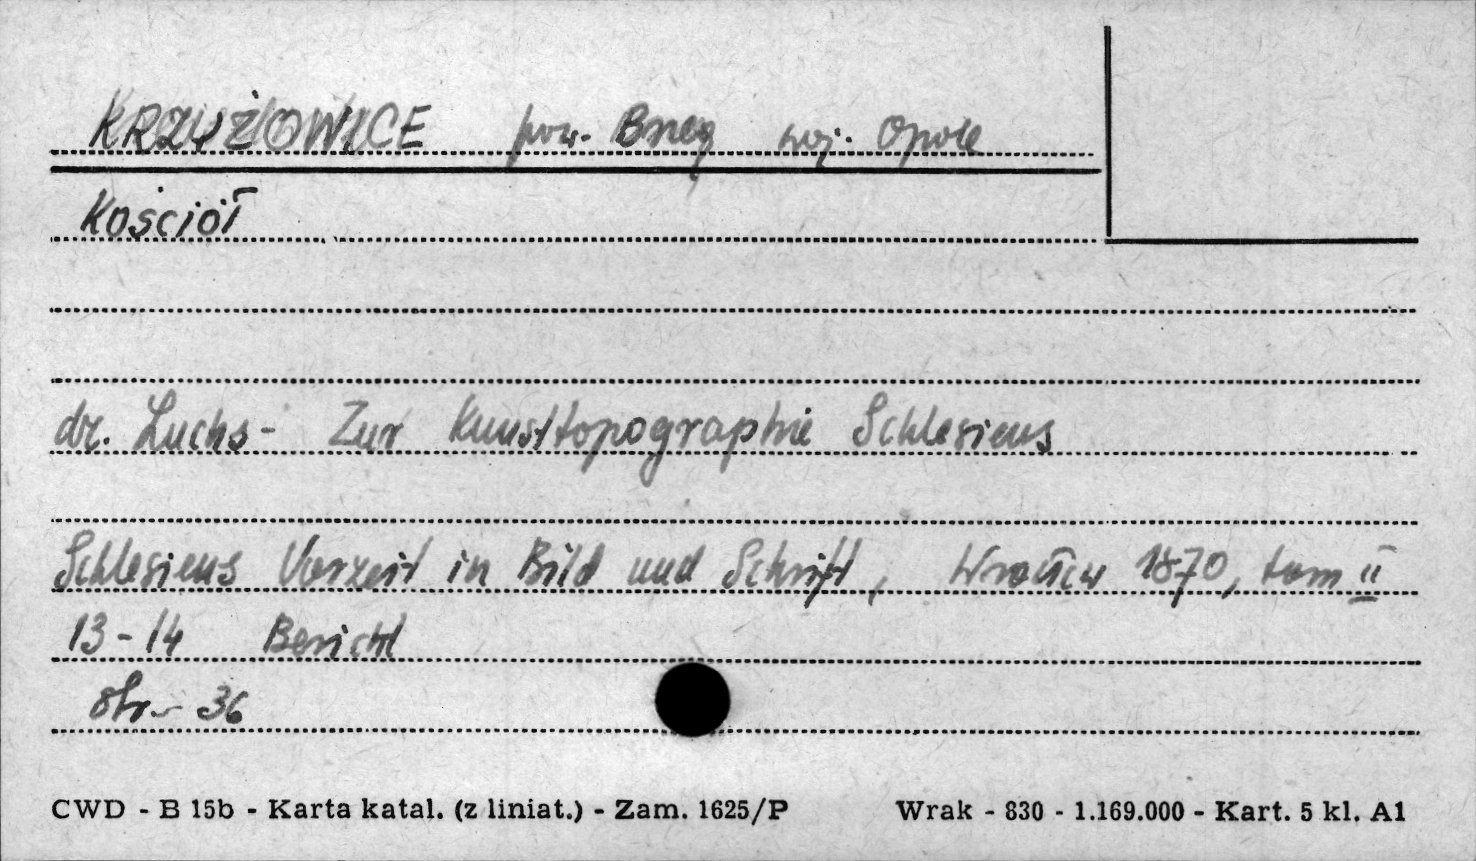 KRZYŻOWICE pow. Brzeg woj. Opole
Kościół
dr. Luchs - Zur Kunsttopographie Schlesiens
Schlesiens Vorzeit in Bild und Schrift, Wrocław 1870, tom II
13-14 Bericht
str. 36
CWD - B 15b - Karta katal. (z liniat.) - Zam. 1625/P Wrak - 830 - 1.169.000 - Kart. 5 kl. A1